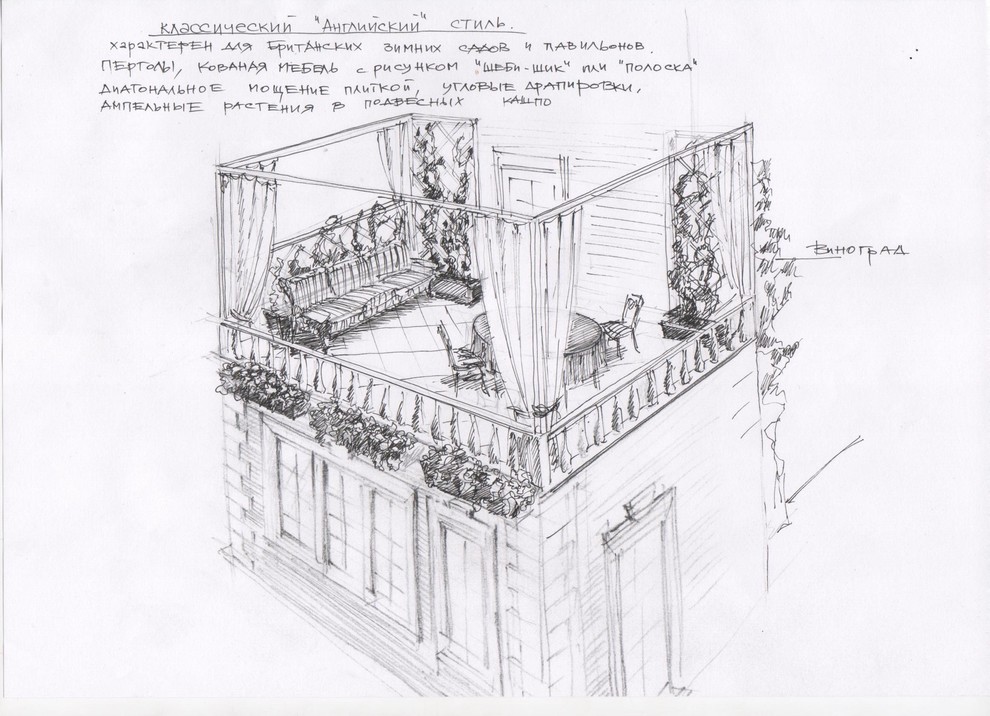 классический "Английский" стиль.
характерен для британских зимних садов и павильонов.
перголы, кованая мебель с рисунком "шеби-шик" или "полоска"
диагональное мощение плиткой, угловые драпировки,
ампельные растения в подвесных кашпо
виноград